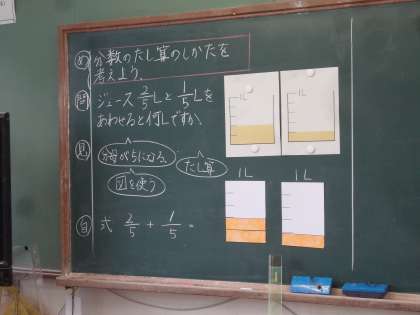 め 分数のたし算のしかたを
考えよう。
問 ジュース 2/5 Lと 1/5 Lを
あわせると何Lですか。
見 分母が5になる
たし算
図を使う
自 式 2/5 + 1/5 =
1L
1L
1L
1L